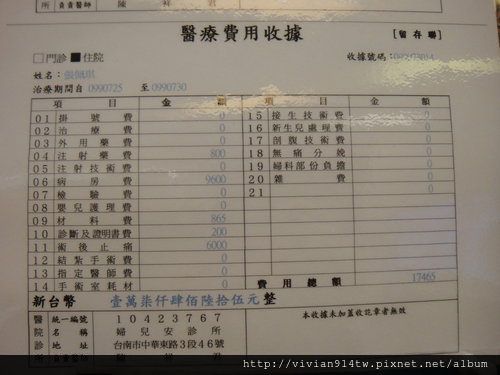 所 負責醫師 陳 祥 君
醫療費用收據 [留存聯]
□門診 ■住院 收據號碼:
姓名:
治療期間自 0990725 至 0990730
項 目 金 額 項 目 金 額
01 掛號費 0 15 接生技術費 0
02 治療費 0 16 新生兒處理費 0
03 外用藥費 0 17 剖腹技術費 0
04 注射藥費 800 18 無痛分娩 0
05 注射技術費 0 19 婦科部份負擔 0
06 病房費 9600 20 雜費 0
07 檢驗費 0 21 0
08 嬰兒護理費 0
09 材料費 865
10 診斷及證明書費 200
11 術後止痛 6000
12 結紮手術費 0
13 指定醫師費 0
14 手術室耗材 0 費用總額 17465
新台幣 壹萬柒仟肆佰陸拾伍元 整
醫 統一編號 10423767 本收據未加蓋收訖章者無效
院 名稱 婦兒安診所
診 地址 台南市中華東路3段46號
所 負責醫師 陳 祥 君
http://vivian914tw.pixnet.net/album